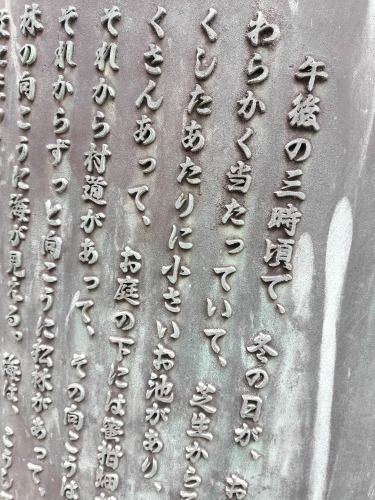 午後の三時頃で、冬の日が、お
わらかく当たっていて、芝生から
くしたあたりに小さいお池があり、
くさんあって、お庭の下には蜜柑畑
それから村道があって、その向こうは
それからずっと向こうに松林があって、
林の向こうに海が見える。海は、こうし